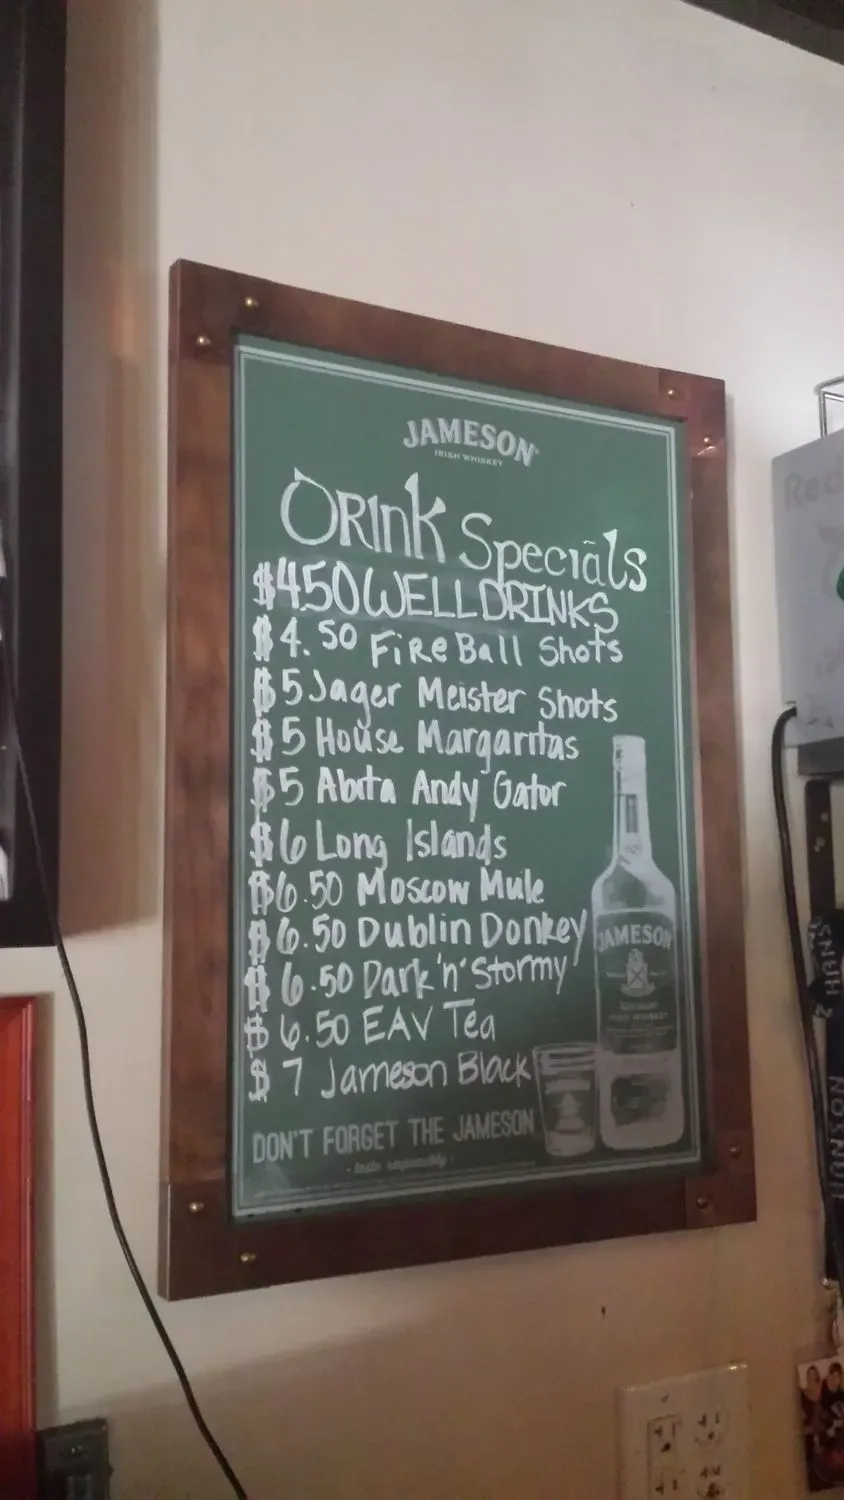 JAMESON
IRISH WHISKEY
DRINK Specials
$4.50 WELL DRINKS
$4.50 FireBall Shots
$5 Jager Meister Shots
$5 House Margaritas
$5 Abita Andy Gator
$6 Long Islands
$6.50 Moscow Mule
$6.50 Dublin Donkey
$6.50 Dark 'n' Stormy
$6.50 EAV Tea
$7 Jameson Black
JAMESON
IRISH WHISKEY
DON'T FORGET THE JAMESON
- taste responsibly -
Red
HANSON